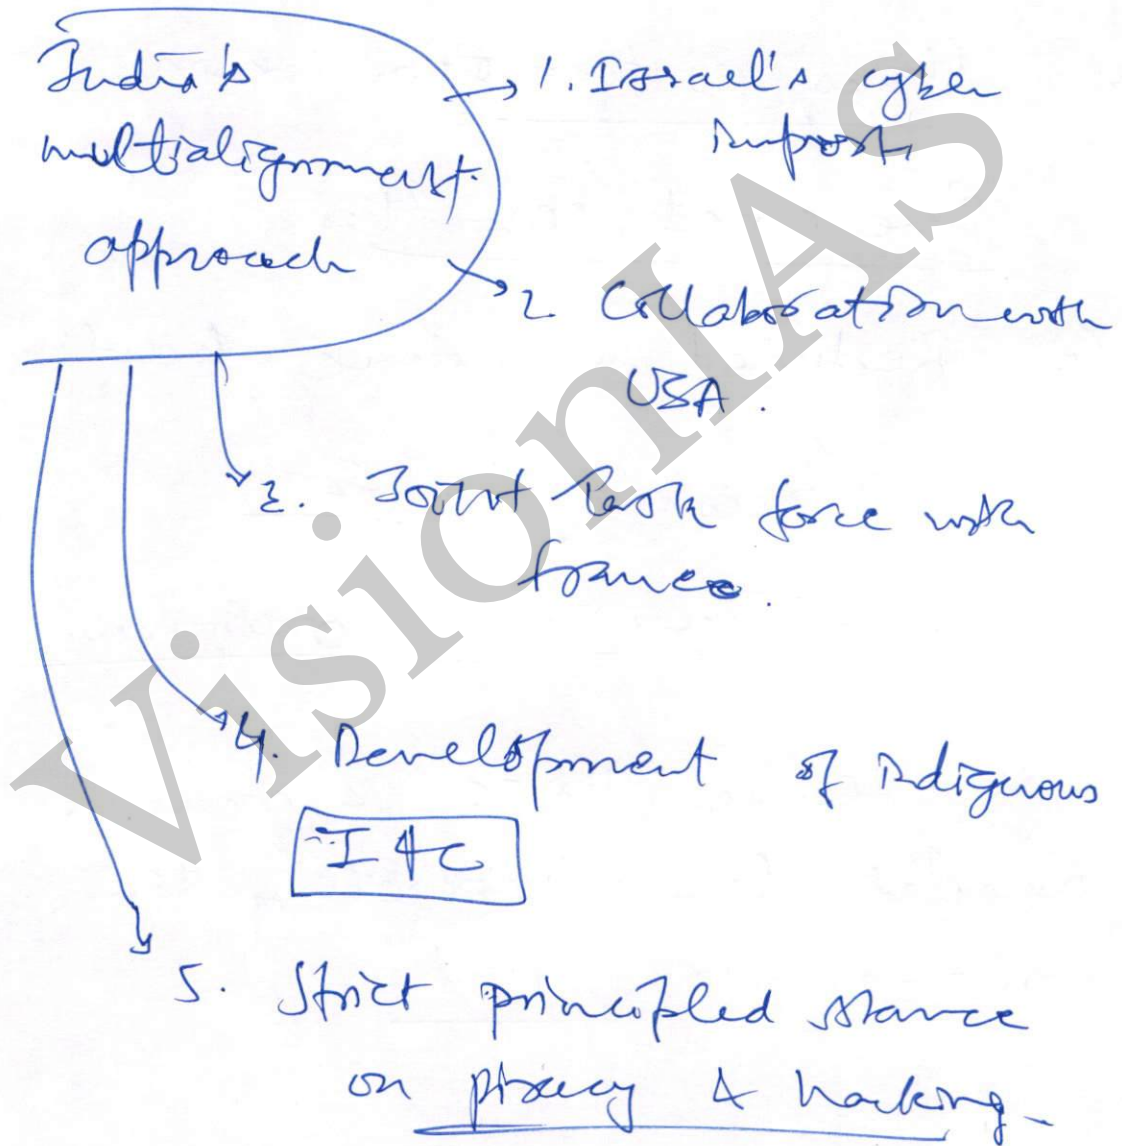 India's
multialignment
approach
1. Israel's cyber
support
2. Collaboration with
USA.
3. Joint Task force with
france.
4. Development of indigenous
I4C
5. Strict principled stance
on piracy & hacking
VisionIAS